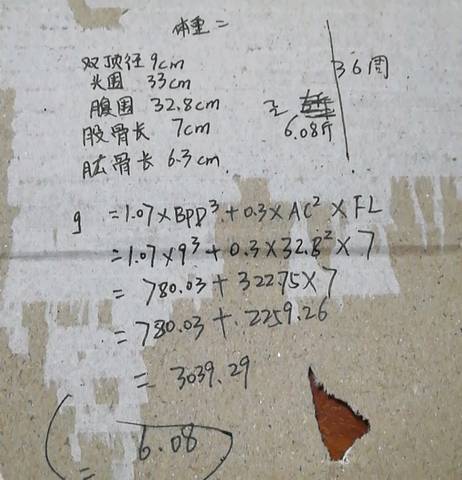 体重=
双顶径 9cm
头围 33cm
腹围 32.8cm
股骨长 7cm
肱骨长 6.3cm
36周
6.08斤
g =1.07×BPD³+0.3×AC²×FL
=1.07×9³+0.3×32.8²×7
= 780.03+322.75×7
=780.03+2259.26
= 3039.29
= 6.08